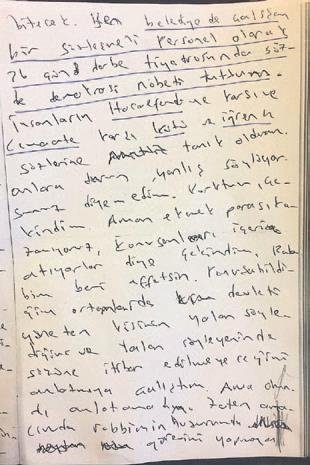 bitecek. Ben belediyede çalışan
bir sözleşmeli personel olarak
26 gün darbe tiyatrosunda söz-
de demokrasi nöbeti tuttum.
İnsanların Hocaefendiye karşı ve
Cemaate karşı kötü ve iğrenç
sözlerine tanık oldum.
onlara durun yanlış söylüyor-
sunuz diyemedim. Korktum, çe-
kindim. Aman ekmek parası ka-
zanıyoruz, konuşanları içeri
atıyorlar diye çekindim, Rab-
bim beni affetsin. Konuşabildi-
ğim ortamlarda devleti
yöneten kişinin yalan söyle-
diğini ve yalan söyleyenin de
sözüne itibar edilmeyeceğini
anlatmaya çalıştım. Ama olma-
dı, anlatamadım. Zaten ama-
cımda rabbimin huzurunda
görevini yapmayan